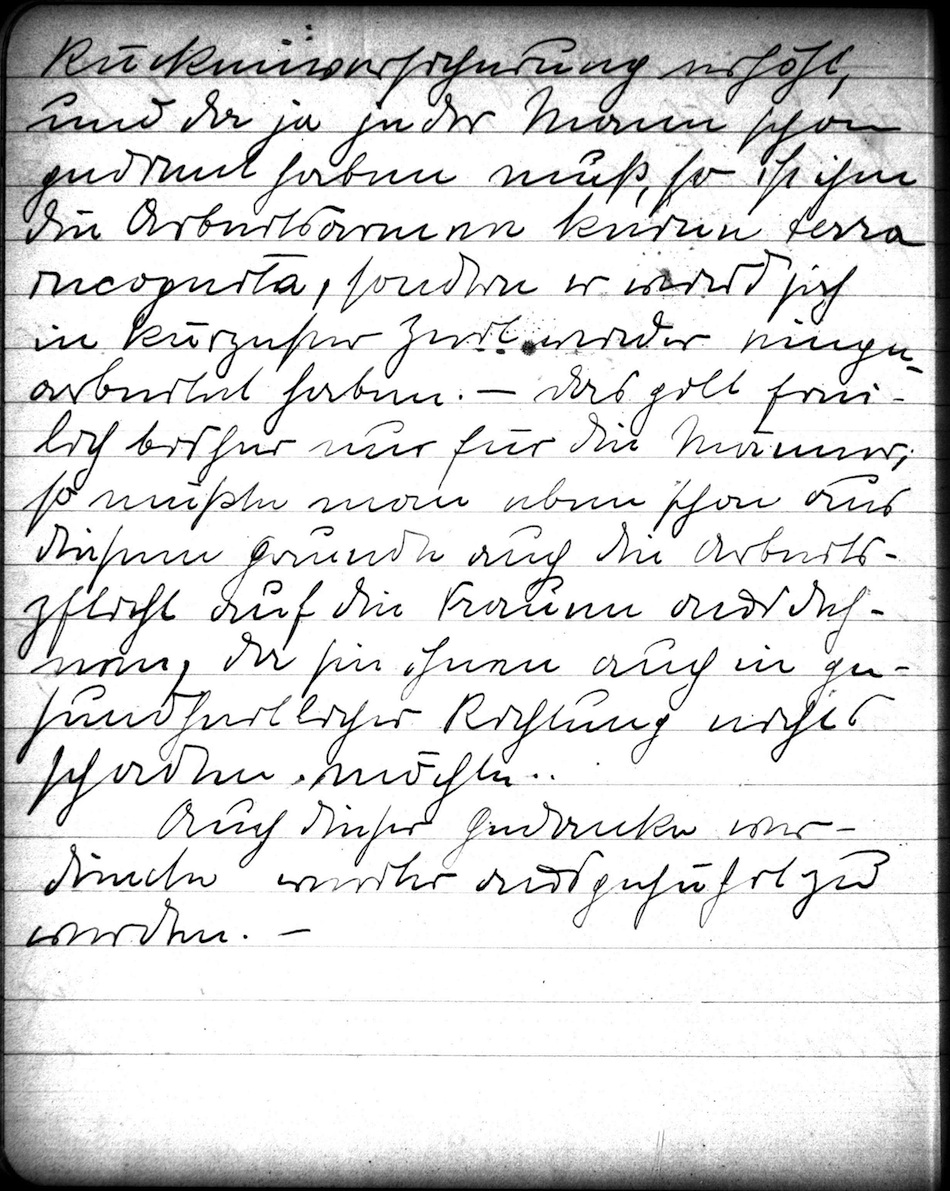 Rückenversicherung erhöht,
und da ja jeder Mann schon
gedient haben muß, so ist ihm
die Arbeitsarmee keine terra
incognita, sondern er wird sich
in kürzester Zeit wieder einge-
arbeitet haben. — Das gilt frei-
lich bisher nur für die Männer;
so müßte man eben schon aus
diesem Grunde auch die Arbeits-
pflicht auf die Frauen ausdeh-
nen, da sie ihnen auch in ge-
sundheitlicher Richtung nichts
schaden möchte..
Auch dieser Gedanke ver-
diente weiter ausgeführt zu
werden. —